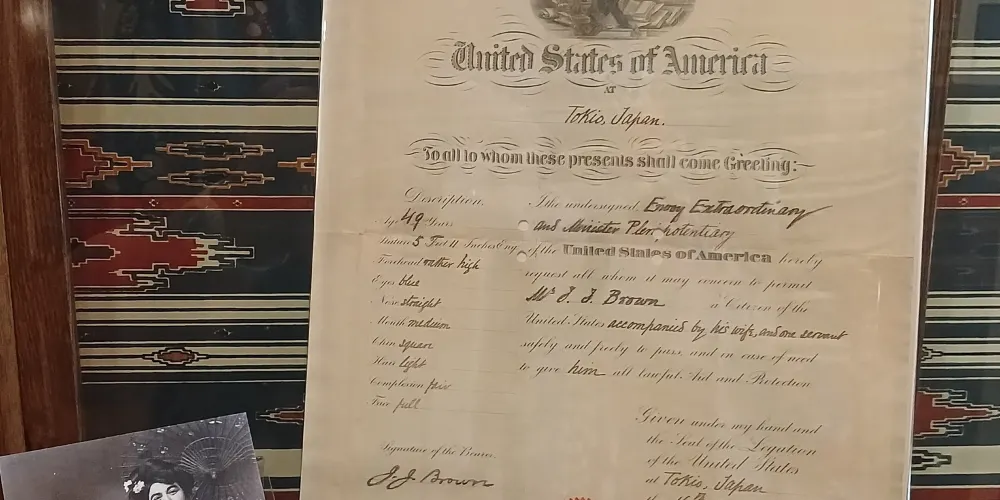 United States of America
AT
Tokio, Japan.
To all to whom these presents shall come Greeting:
Description.
Age 49 Years
Stature 5 Feet 11 Inches Eng.
Forehead rather high
Eyes blue
Nose straight
Mouth medium
Chin square
Hair light
Complexion fair
Face full
Signature of the Bearer.
J. J. Brown
I the undersigned, Envoy Extraordinary
and Minister Plenipotentiary
of the United States of America hereby
request all whom it may concern to permit
Mr J. J. Brown a Citizen of the
United States accompanied by his wife, and one servant
safely and freely to pass, and in case of need
to give him all lawful Aid and Protection
Given under my hand and
the Seal of the Legation
of the United States
at Tokio, Japan
the